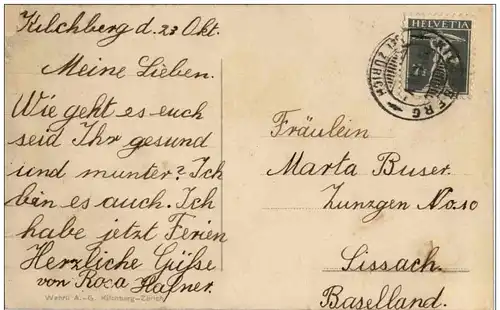 Kilchberg d. 23 Okt.
Meine Lieben.
Wie geht es euch
seid Ihr gesund
und munter? Ich
bin es auch. Ich
habe jetzt Ferien
Herzliche Grüsse
von Rosa Hafner.
Wehrli A.-G. Kilchberg-Zürich
HELVETIA
Fräulein
Marta Buser.
Zunzgen No 10
Sissach.
Baselland.